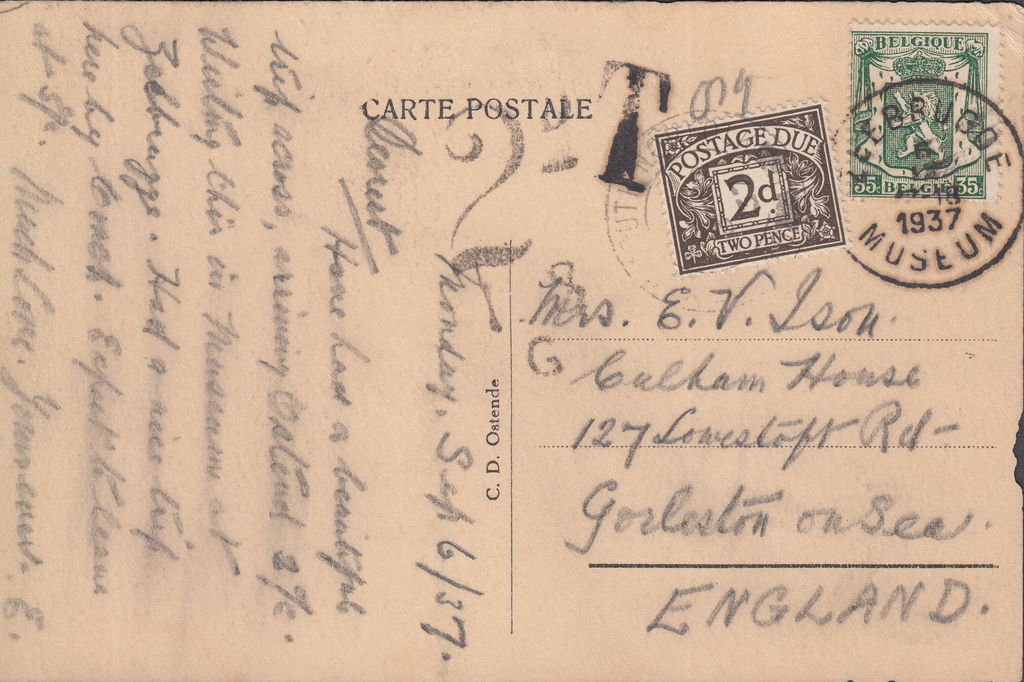 CARTE POSTALE
T
BELGIQUE
35c BELGIE 35c
ZEEBRUGGE
1937
MUSEUM
POSTAGE DUE
2d
TWO PENCE
C. D. Ostende
Monday. Sept 6/37.
Dearest
Have had a beautiful
trip across, arriving Ostend 2 pm.
Writing this in Museum at
Zeebrugge. Had a nice trip
here by Coach. Expect to leave
at 5 pm. Much love. Yours ever. E.
Mrs. E. V. Ison.
Culham House
127 Lowestoft Rd
Gorleston on Sea.
ENGLAND.
G